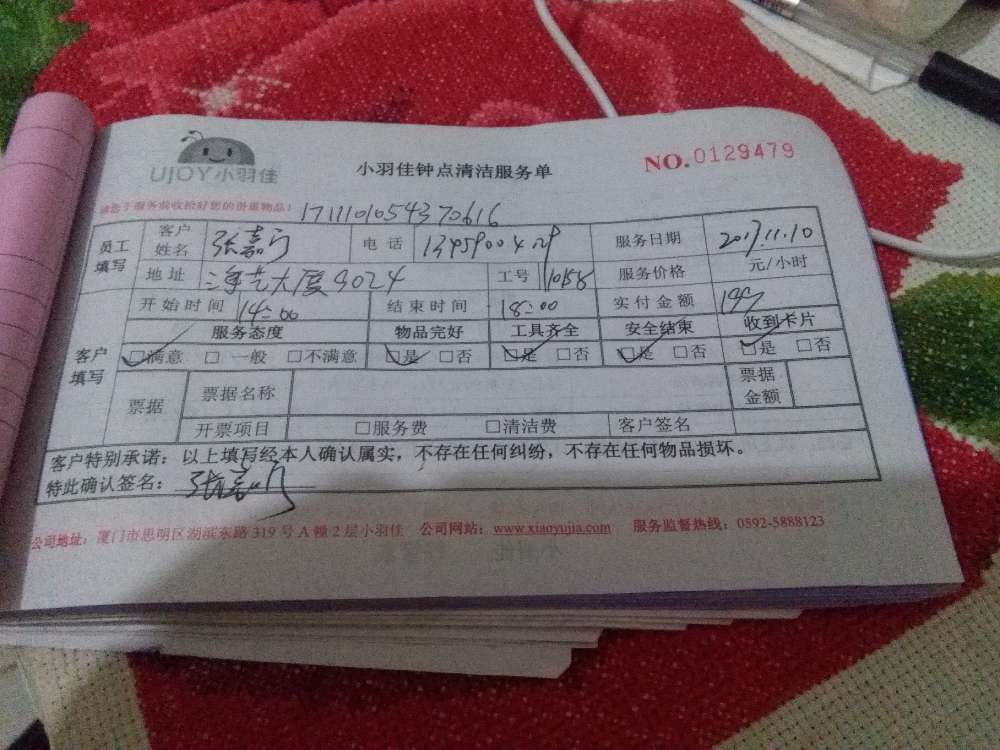 UJOY小羽佳
小羽佳钟点清洁服务单
NO.0129479
请您于服务前收拾好您的贵重物品!
1711101054370616
员工填写 客户姓名 张嘉 电话 服务日期 2017.11.10
地址 大厦9024 工号 10158 服务价格 元/小时
客户填写 开始时间 14:00 结束时间 18:00 实付金额
服务态度 物品完好 工具齐全 安全结束 收到卡片
☑满意 □一般 □不满意 ☑是 □否 ☑是 □否 ☑是 □否 ☑是 □否
票据 票据名称 票据金额
开票项目 □服务费 □清洁费 客户签名
客户特别承诺：以上填写经本人确认属实，不存在任何纠纷，不存在任何物品损坏。
特此确认签名：张嘉
公司地址：厦门市思明区湖滨东路319号A幢2层小羽佳 公司网站：www.xiaoyujia.com 服务监督热线：0592-5888123